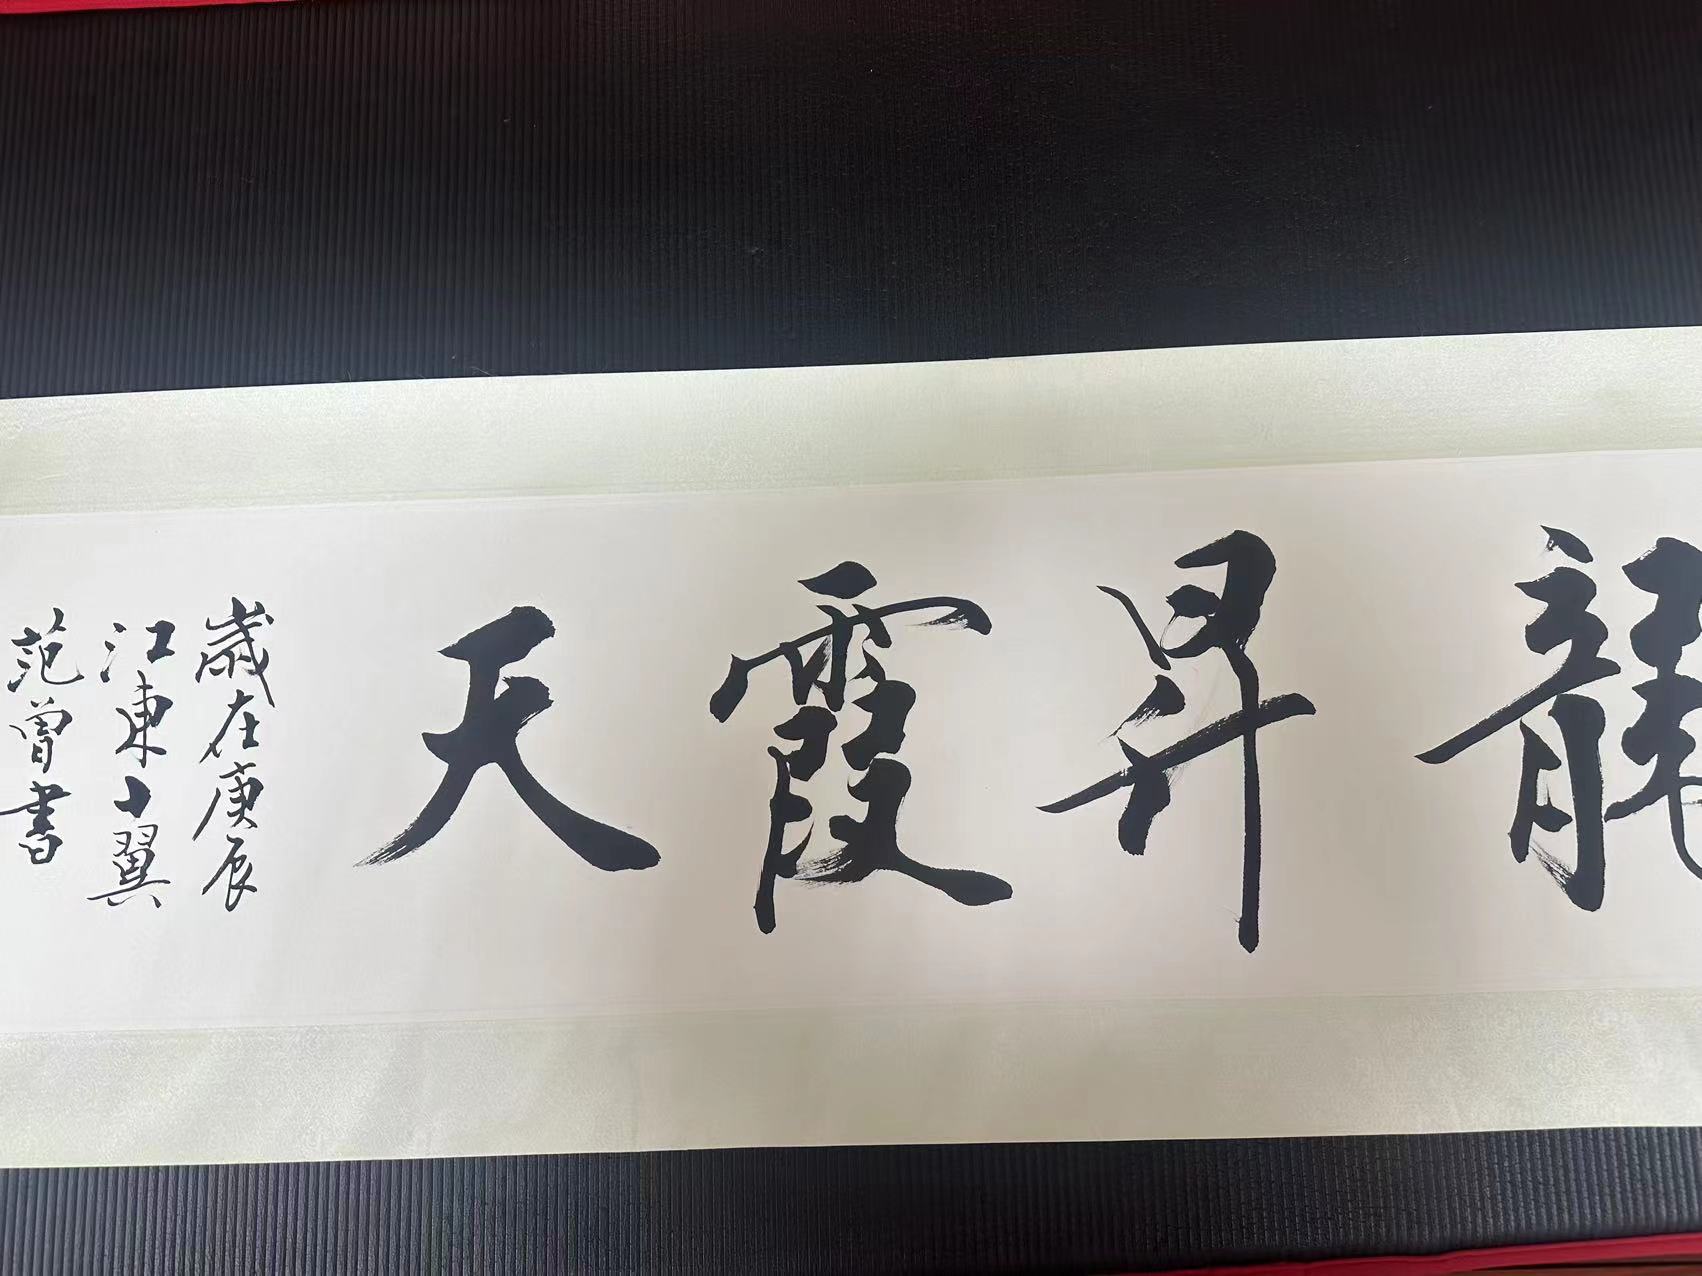 龍昇霞天
歲在庚辰
江東十翼
范曾書